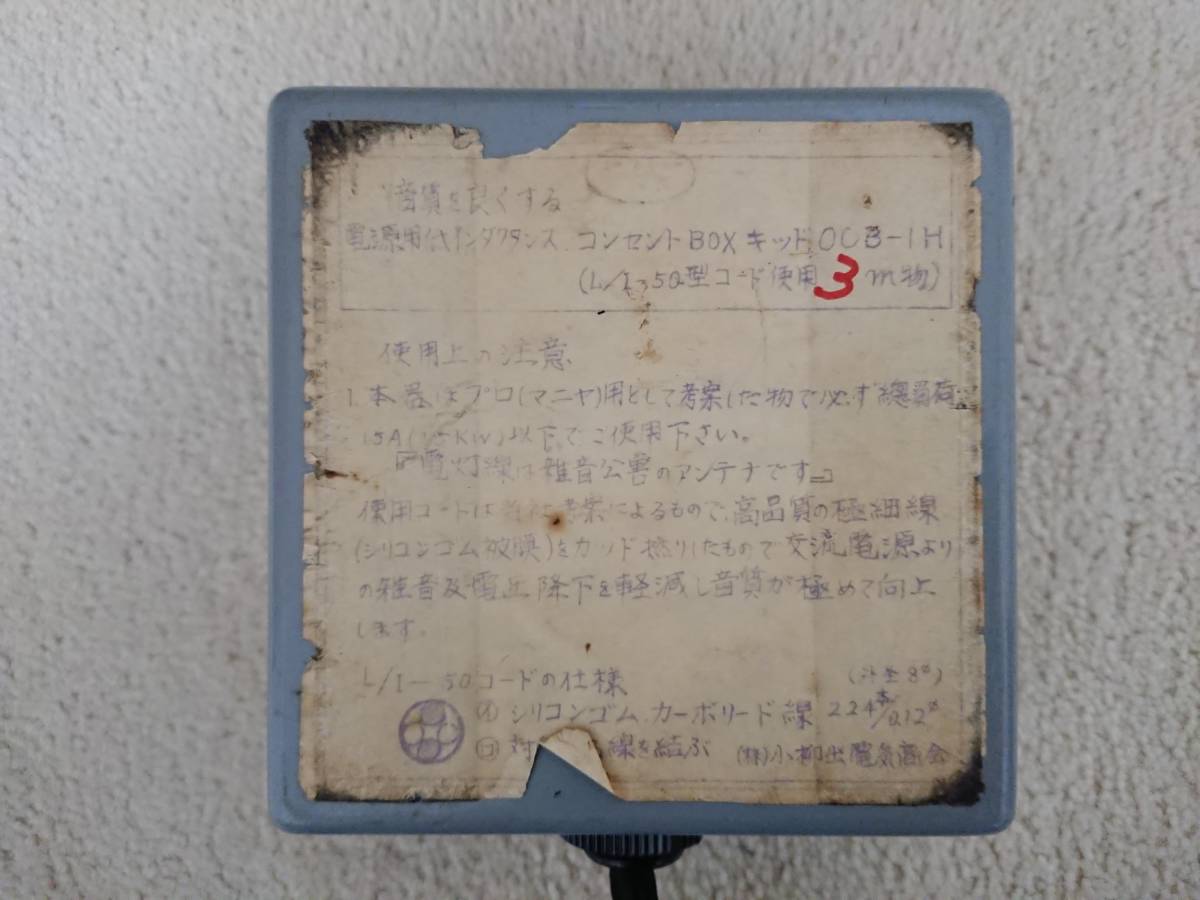 音質を良くする
電源用低インダクタンス コンセントBOXキット OCB-1H
(L/I-50型コード使用 3 m物)
使用上の注意
1. 本器はプロ(マニヤ)用として考案した物で必ず總負荷
15A(1.5KW)以下でご使用下さい。
『電灯線は雑音公害のアンテナです』
使用コードは 考案によるもので、高品質の極細線
(シリコンゴム被膜)をカッド撚りしたもので交流電源より
の雑音及電圧降下を軽減し音質が極めて向上
します。
L/I-50コードの仕様 (外全8φ)
㋑ シリコンゴム.カーボリード線 224本/0.12φ
㋺ 対 線を結ぶ (株)小柳出電気商会